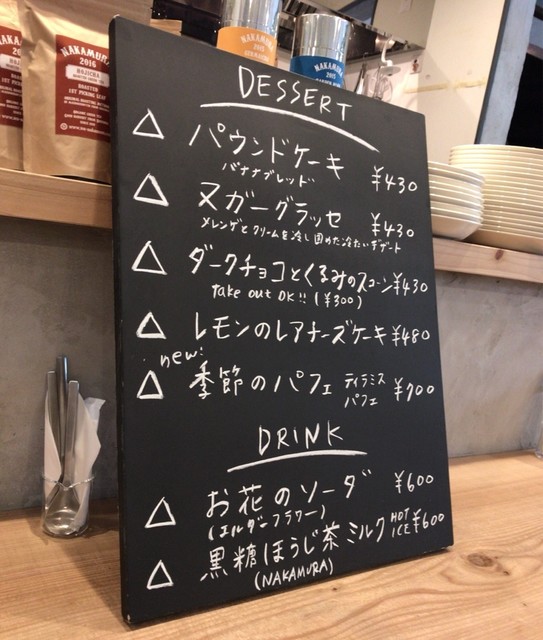 NAKAMURA
2016
HOJICHA
ROASTED
NAKAMURA
2016
DESSERT
パウンドケーキ ¥430
バナナブレッド
ヌガーグラッセ ¥430
メレンゲとクリームを冷し固めた冷たいデザート
ダークチョコとくるみのスコーン ¥430
Take out OK!! (¥300)
レモンのレアチーズケーキ ¥480
new!
季節のパフェ ティラミスパフェ ¥700
DRINK
お花のソーダ ¥600
(エルダーフラワー)
黒糖ほうじ茶ミルク HOT ICE ¥600
(NAKAMURA)